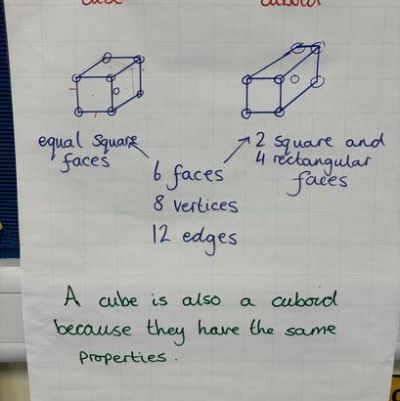 cube
cuboid
equal square
faces
2 square and
4 rectangular
faces
6 faces
8 vertices
12 edges
A cube is also a cuboid
because they have the same
properties.